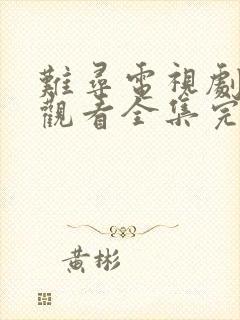 難尋電視劇
觀看全集完
黃彬